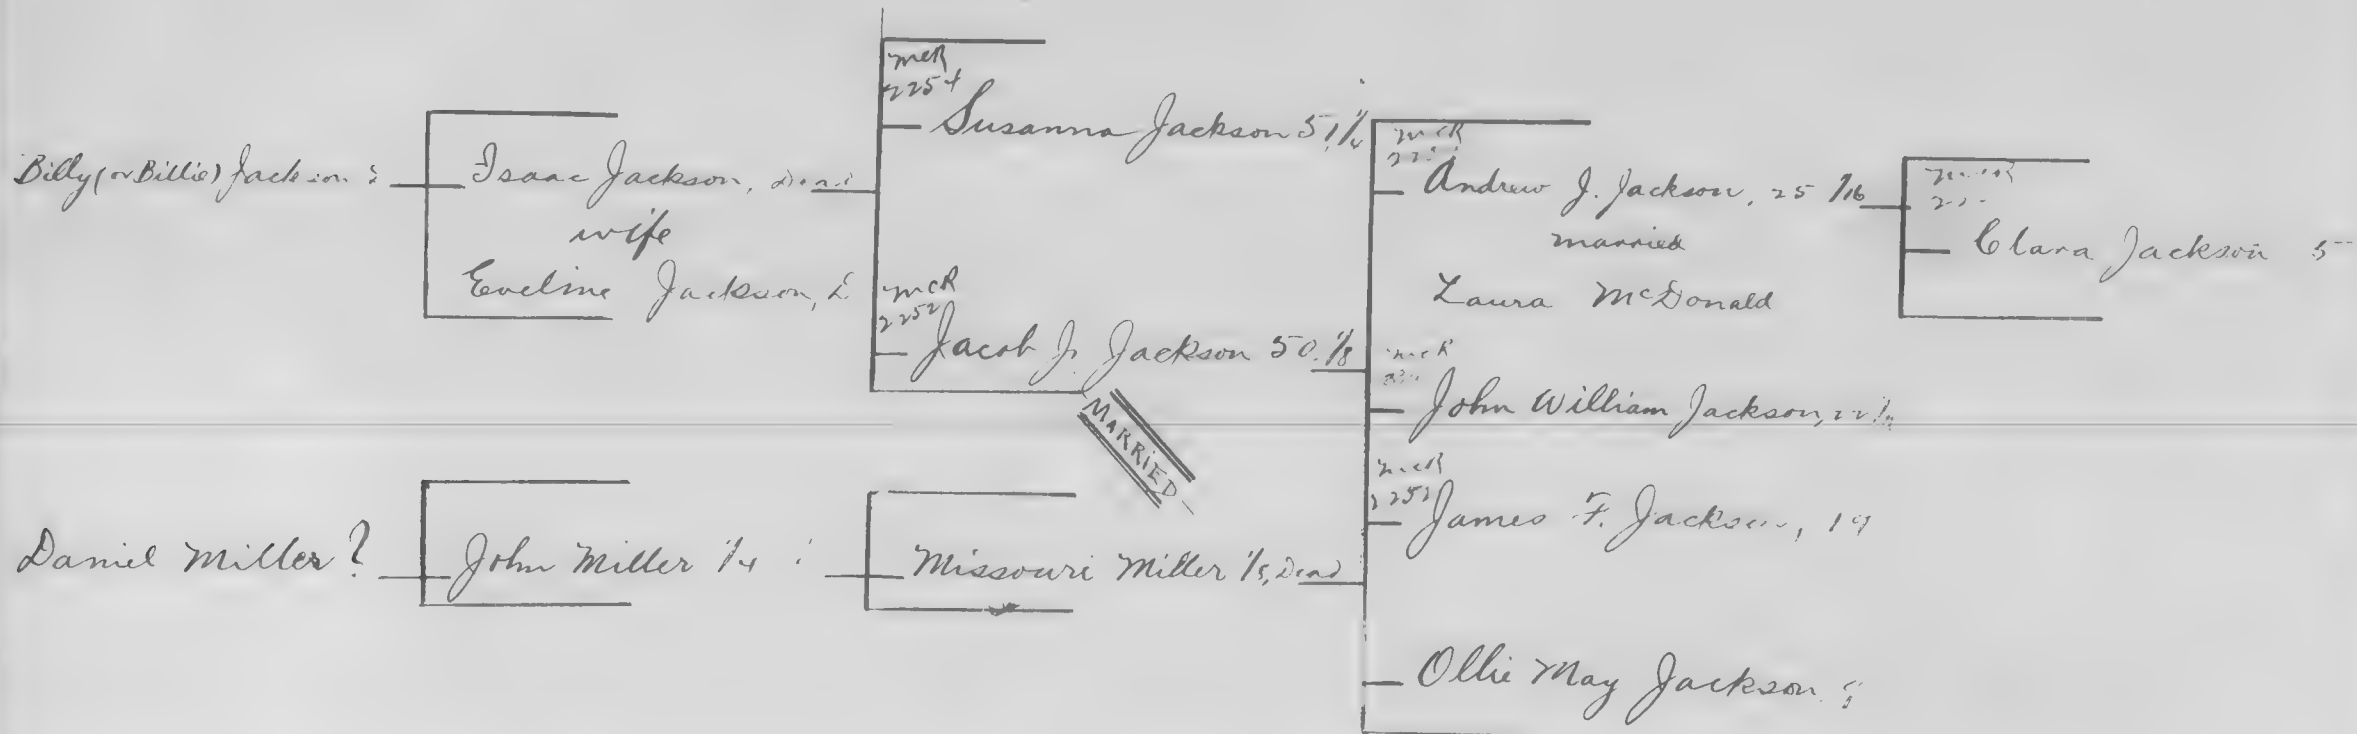 Billy (or Billie) Jackson
Isaac Jackson, Dead
wife
Eveline Jackson,
McR
2254
Susanna Jackson 51 1/4
McR
2252
Jacob J. Jackson 50. 1/8
MARRIED
Daniel Miller ?
John Miller 1/4
Missouri Miller 1/8, Dead
McR
Andrew J. Jackson, 25 1/16
married
Laura McDonald
McR
John William Jackson, 22
McR
2252
James F. Jackson, 19
Ollie May Jackson
McR
Clara Jackson 5